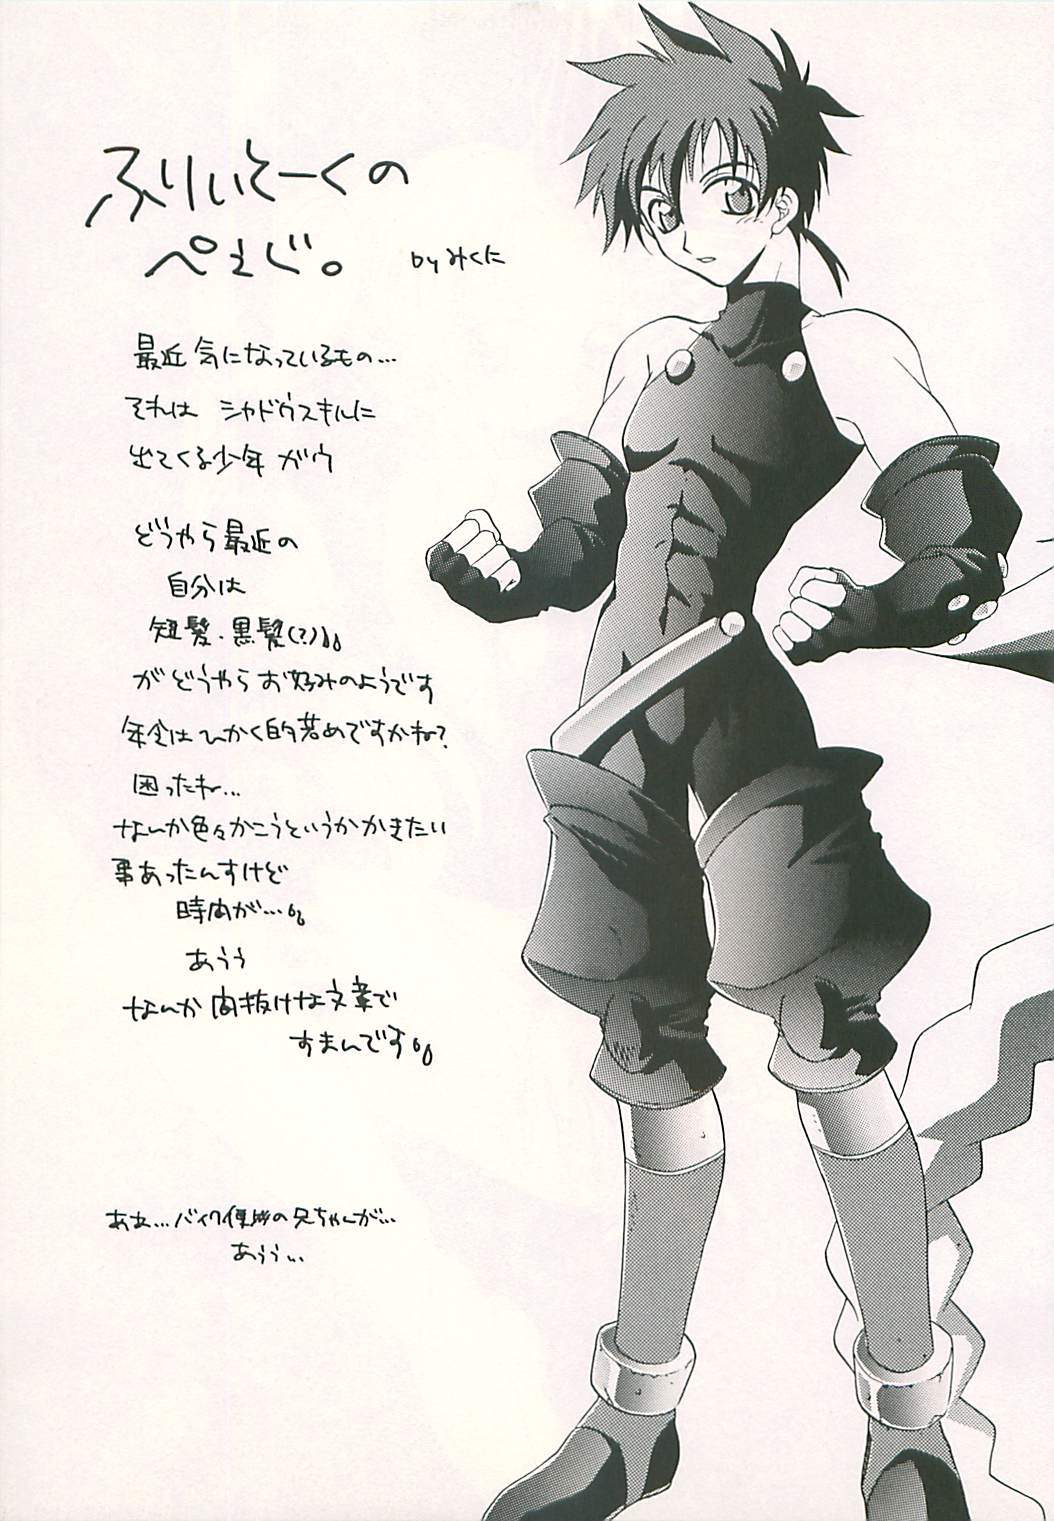 ふりぃとーくの
ぺぇじ。
by みくに
最近 気になっているもの…
それは シャドウスキルに
出てくる少年 ガウ
どうやら最近の
自分は
短髪・黒髪(?)
がどうやら お好みのようです
年令はひかく的若めですかね?
困ったね…
なんか色々かこうというかかきたい
事あったんすけど
時間が…。
あうぅ
なんか 間抜けな文章で
すまんです。
あぁ…バイク便の兄ちゃんが…
あうぅ…